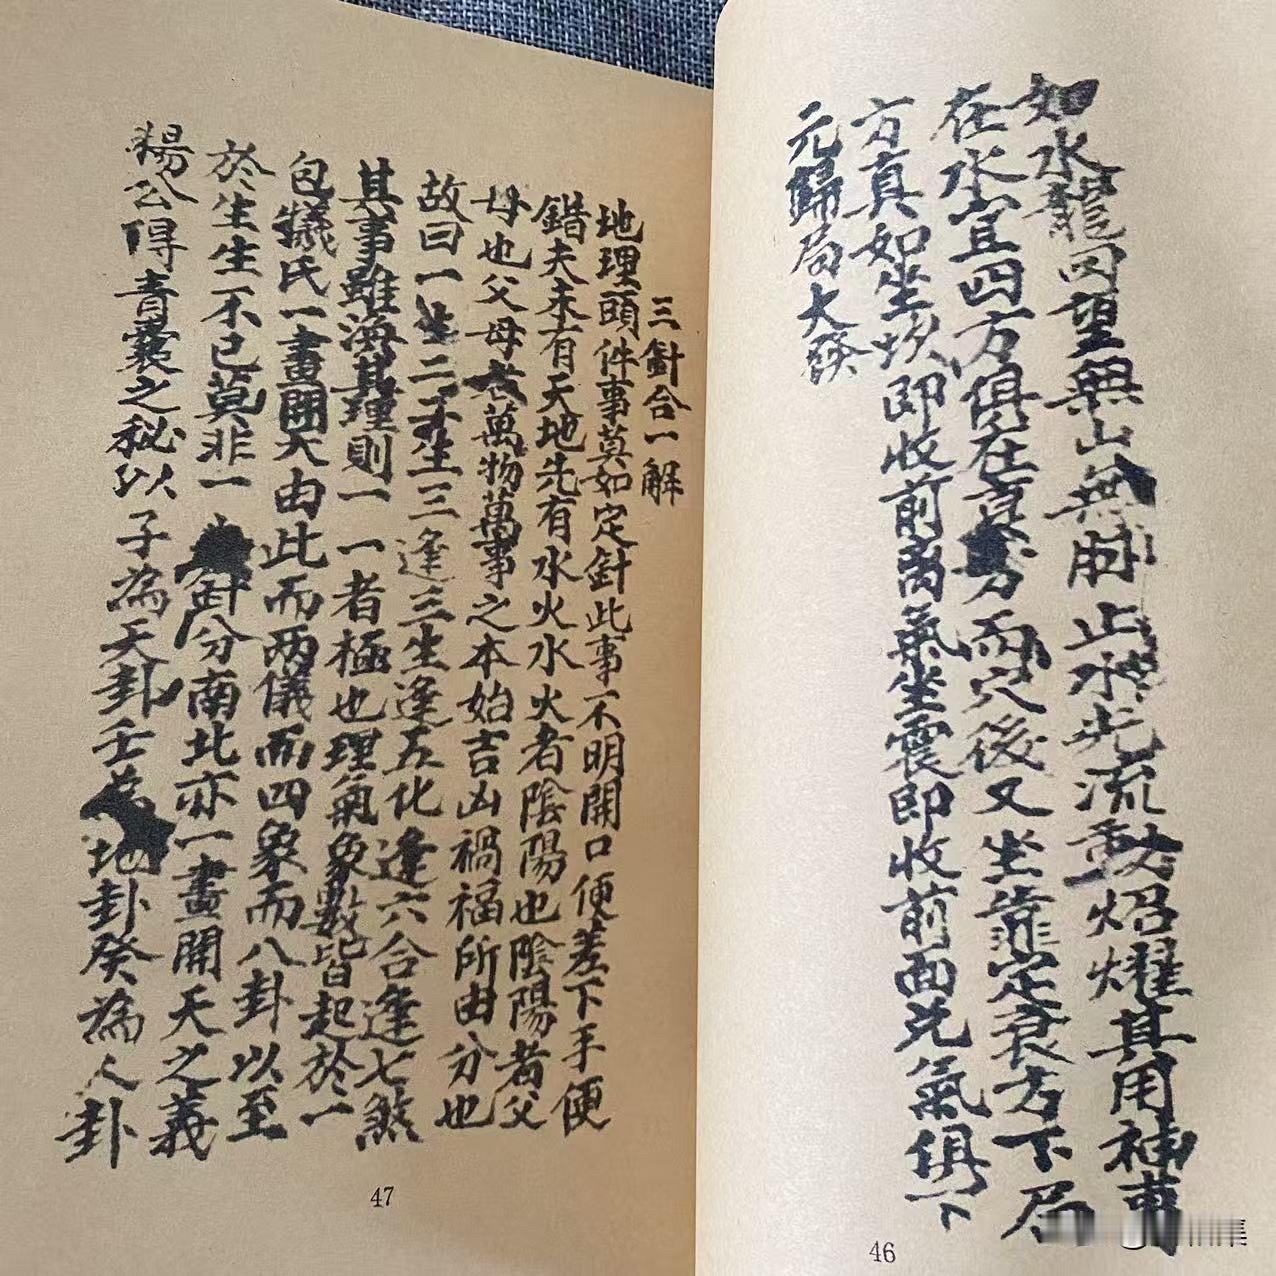 如水龍回望無山無脈止水光流動炤耀其用神專
在水宜四方俱在真方而穴後又坐靠定衰方下局
方真如坐坎即收前离氣坐震即收前面兑氣俱下
元歸局大發
46
三針合一解
地理頭件事莫如定針此事不明開口便差下手便
錯夫未有天地先有水火水火者陰陽也陰陽者父
母也父母者萬物萬事之本始吉凶禍福所由分也
故曰一生二二生三逢三生逢五化逢六合逢七煞
其事雖海其理則一一者極也理氣象數皆起於一
包犧氏一畫開天由此而两儀而四象而八卦以至
於生生不已莫非一針分南北亦一畫開天之義
楊公得青囊之秘以子為天卦壬為地卦癸為人卦
47